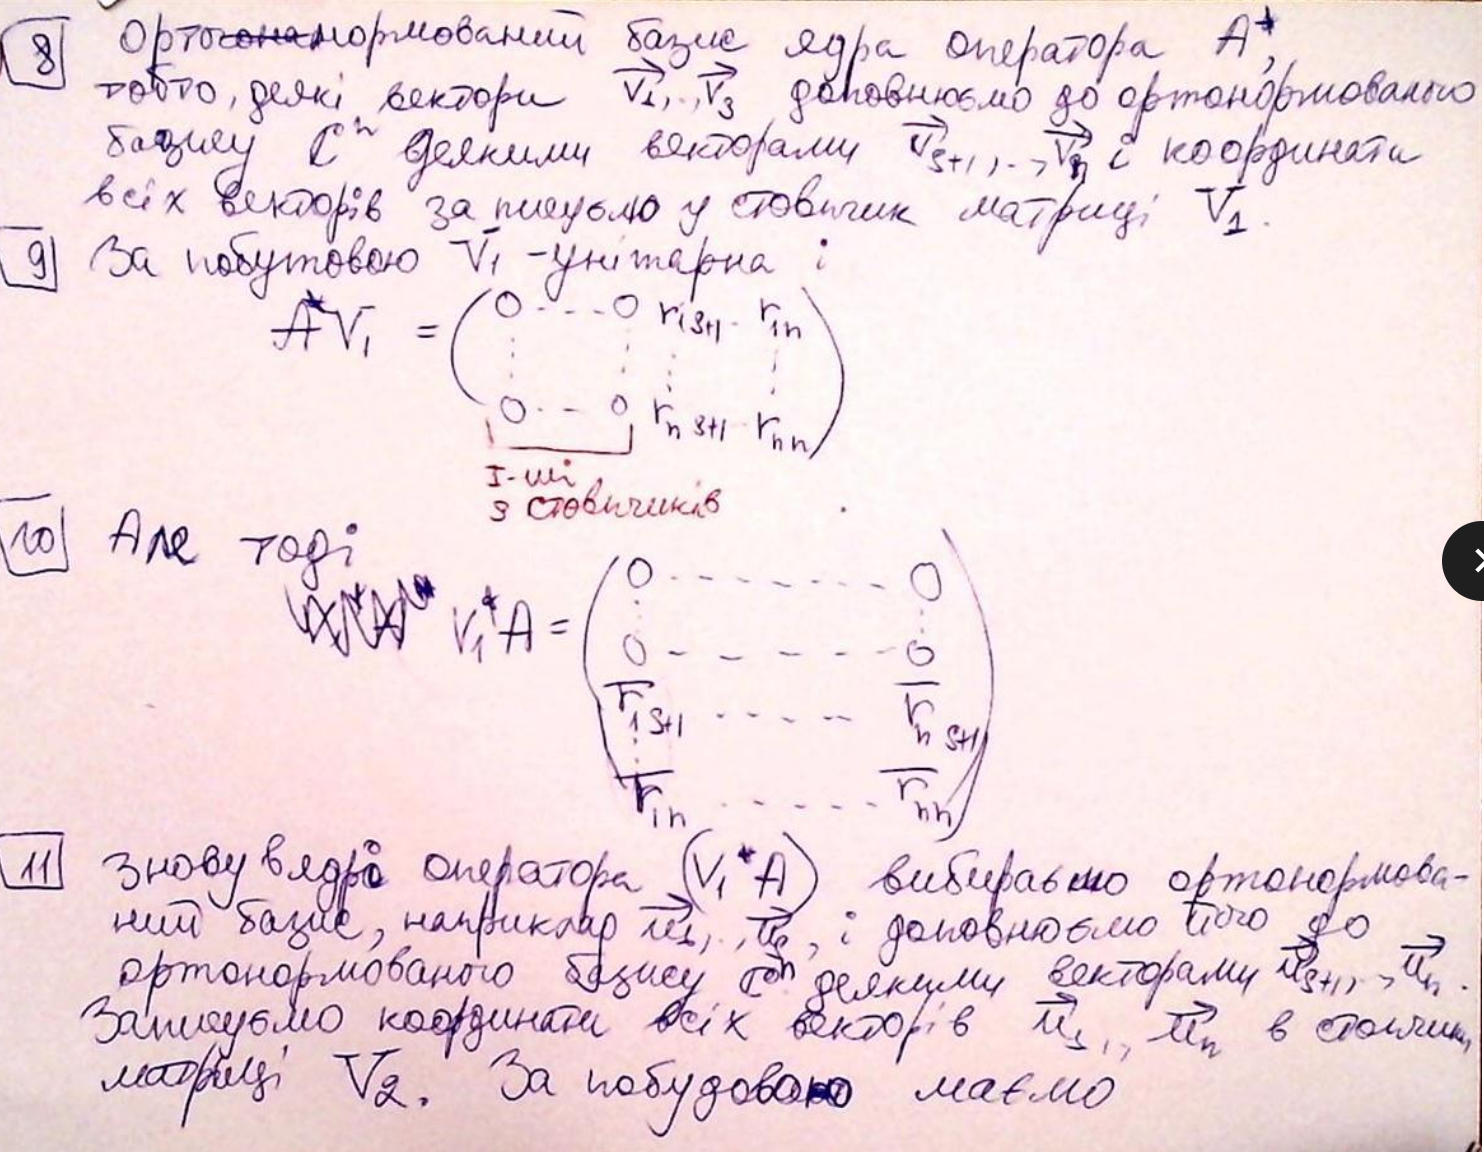 8 Ортонормований базис ядра оператора A*,
тобто, деякі вектори v₁,..,vₛ доповнюємо до ортонормованого
базису ℂⁿ деякими векторами vₛ₊₁,..,vₙ і координати
всіх векторів записуємо у стовпчик матриці V₁.
9 За побутовою V₁ - унітарна і
A*V₁ = ( 0 - - - 0 r₁ₛ₊₁ - r₁ₙ
0 - - 0 rₙ ₛ₊₁ - rₙₙ )
I-ші
s стовпчиків
10 Але тоді
V₁*A = ( 0 - - - - - - 0
0 - - - - - 0
r̅₁ ₛ₊₁ - - - - - r̅ₙ ₛ₊₁
r̅₁ₙ - - - - - r̅ₙₙ )
11 Знову в ядрі оператора (V₁*A) вибираємо ортонормова-
ний базис, наприклад u₁,..,uₛ, і доповнюємо його до
ортонормованого базису ℂⁿ деякими векторами uₛ₊₁,..,uₙ.
Записуємо координати всіх векторів u₁,..,uₙ в стовпчики
матриці V₂. За побудовою маємо